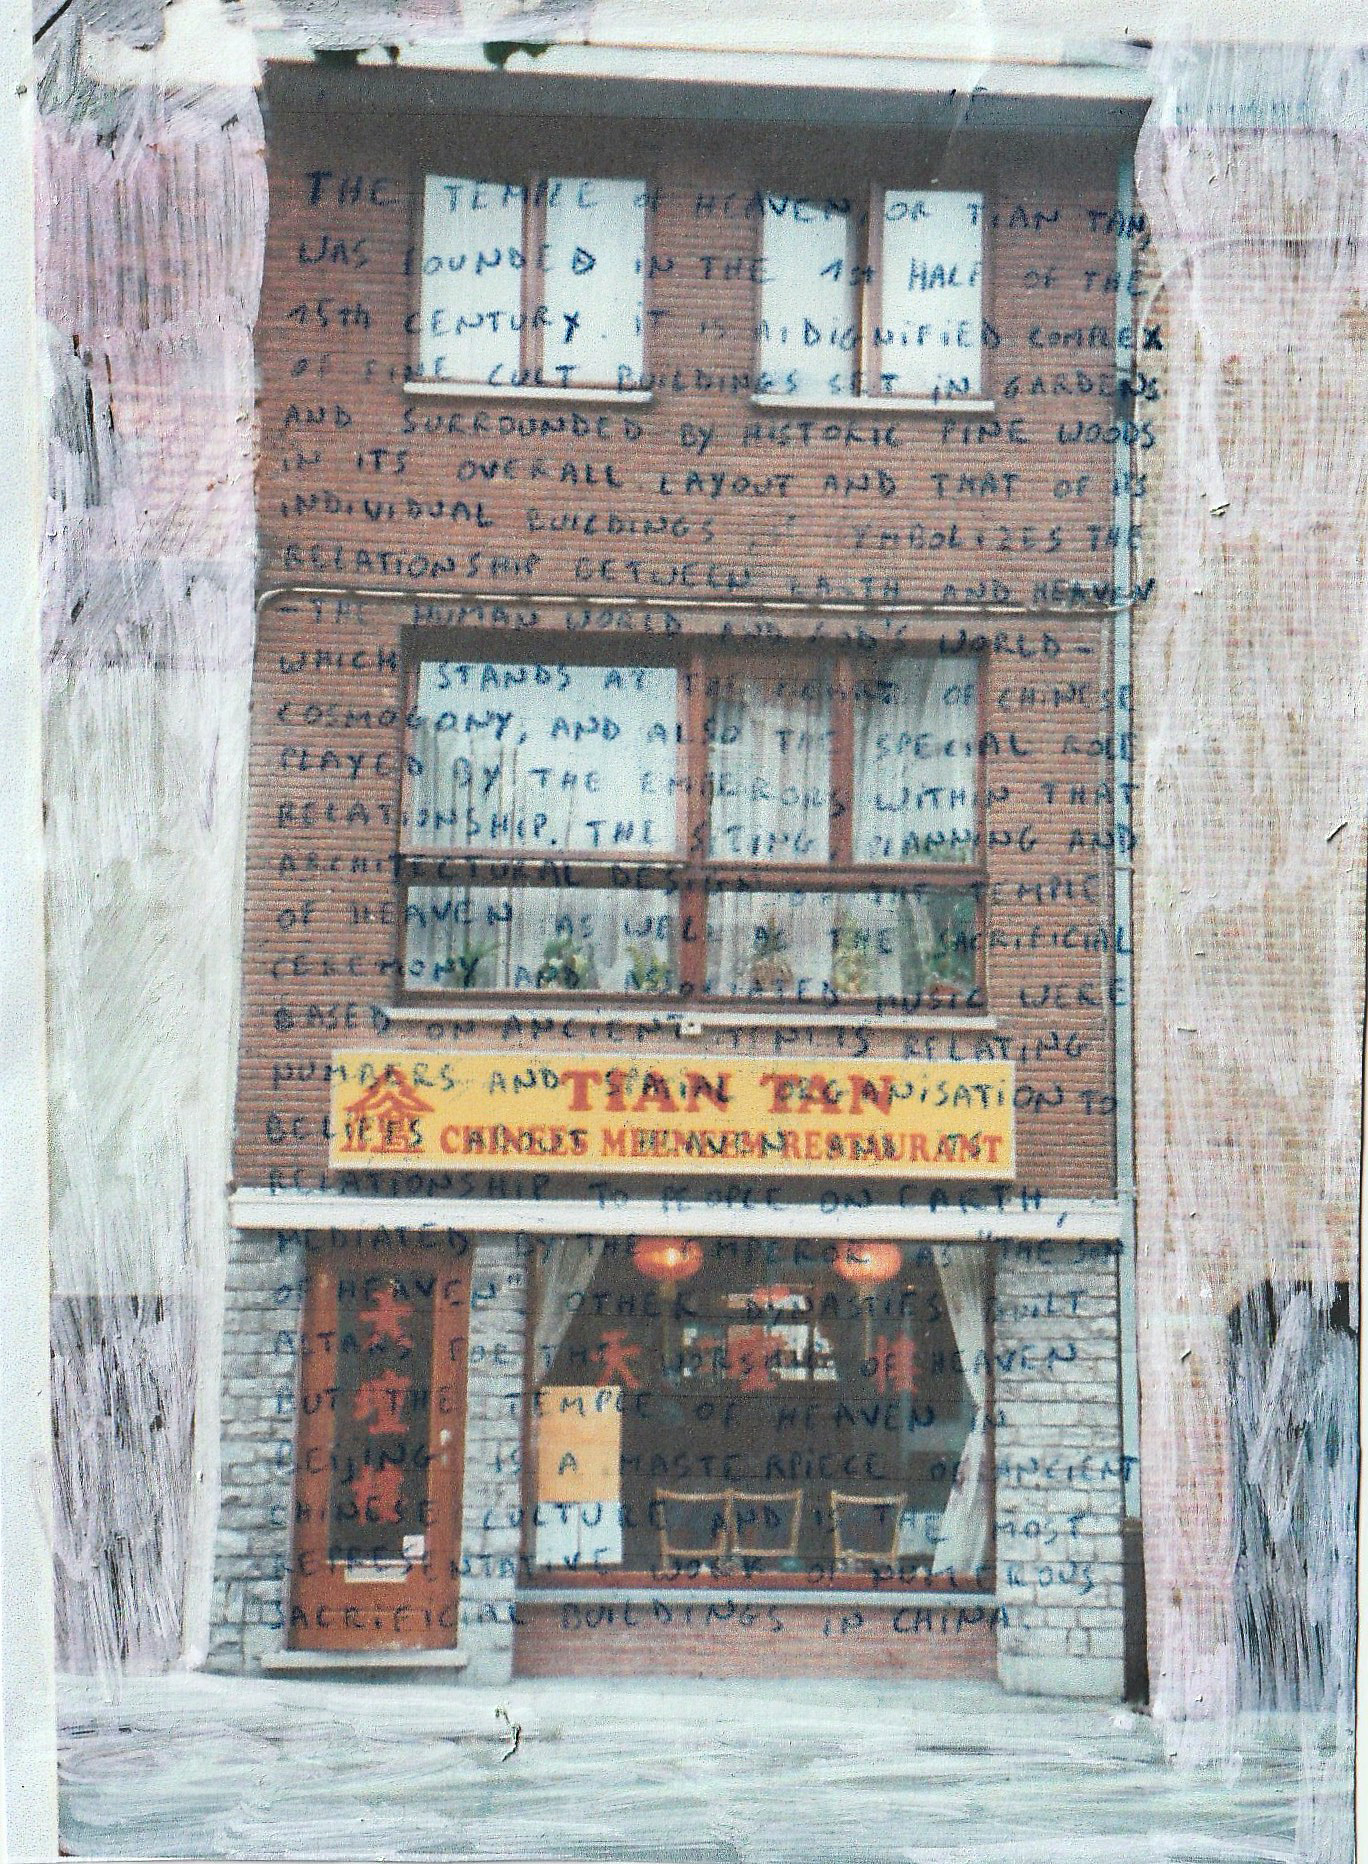 THE TEMPLE OF HEAVEN, OR TIAN TAN,
WAS FOUNDED IN THE 1st HALF OF THE
15th CENTURY. IT IS A DIGNIFIED COMPLEX
OF FINE CULT BUILDINGS SET IN GARDENS
AND SURROUNDED BY HISTORIC PINE WOODS
IN ITS OVERALL LAYOUT AND THAT OF ITS
INDIVIDUAL BUILDINGS IT SYMBOLIZES THE
RELATIONSHIP BETWEEN EARTH AND HEAVEN
- THE HUMAN WORLD AND GOD'S WORLD -
WHICH STANDS AT THE HEART OF CHINESE
COSMOGONY, AND ALSO THE SPECIAL ROLE
PLAYED BY THE EMPERORS WITHIN THAT
RELATIONSHIP. THE SITING, PLANNING AND
ARCHITECTURAL DESIGN OF THE TEMPLE
OF HEAVEN AS WELL AS THE SACRIFICIAL
CEREMONY AND ASSOCIATED MUSIC WERE
BASED ON ANCIENT TENETS RELATING
NUMBERS AND SPATIAL ORGANISATION TO
TIAN TAN
BELIEFS ABOUT HEAVEN AND ITS
CHINEES MEENEEM-RESTAURANT
RELATIONSHIP TO PEOPLE ON EARTH,
MEDIATED BY THE EMPEROR AS "THE SON
OF HEAVEN". OTHER DYNASTIES BUILT
ALTARS FOR THE WORSHIP OF HEAVEN
天壇樓
天壇
BUT THE TEMPLE OF HEAVEN IN
BEIJING IS A MASTERPIECE OF ANCIENT
CHINESE CULTURE AND IS THE MOST
REPRESENTATIVE WORK OF NUMEROUS
SACRIFICIAL BUILDINGS IN CHINA.